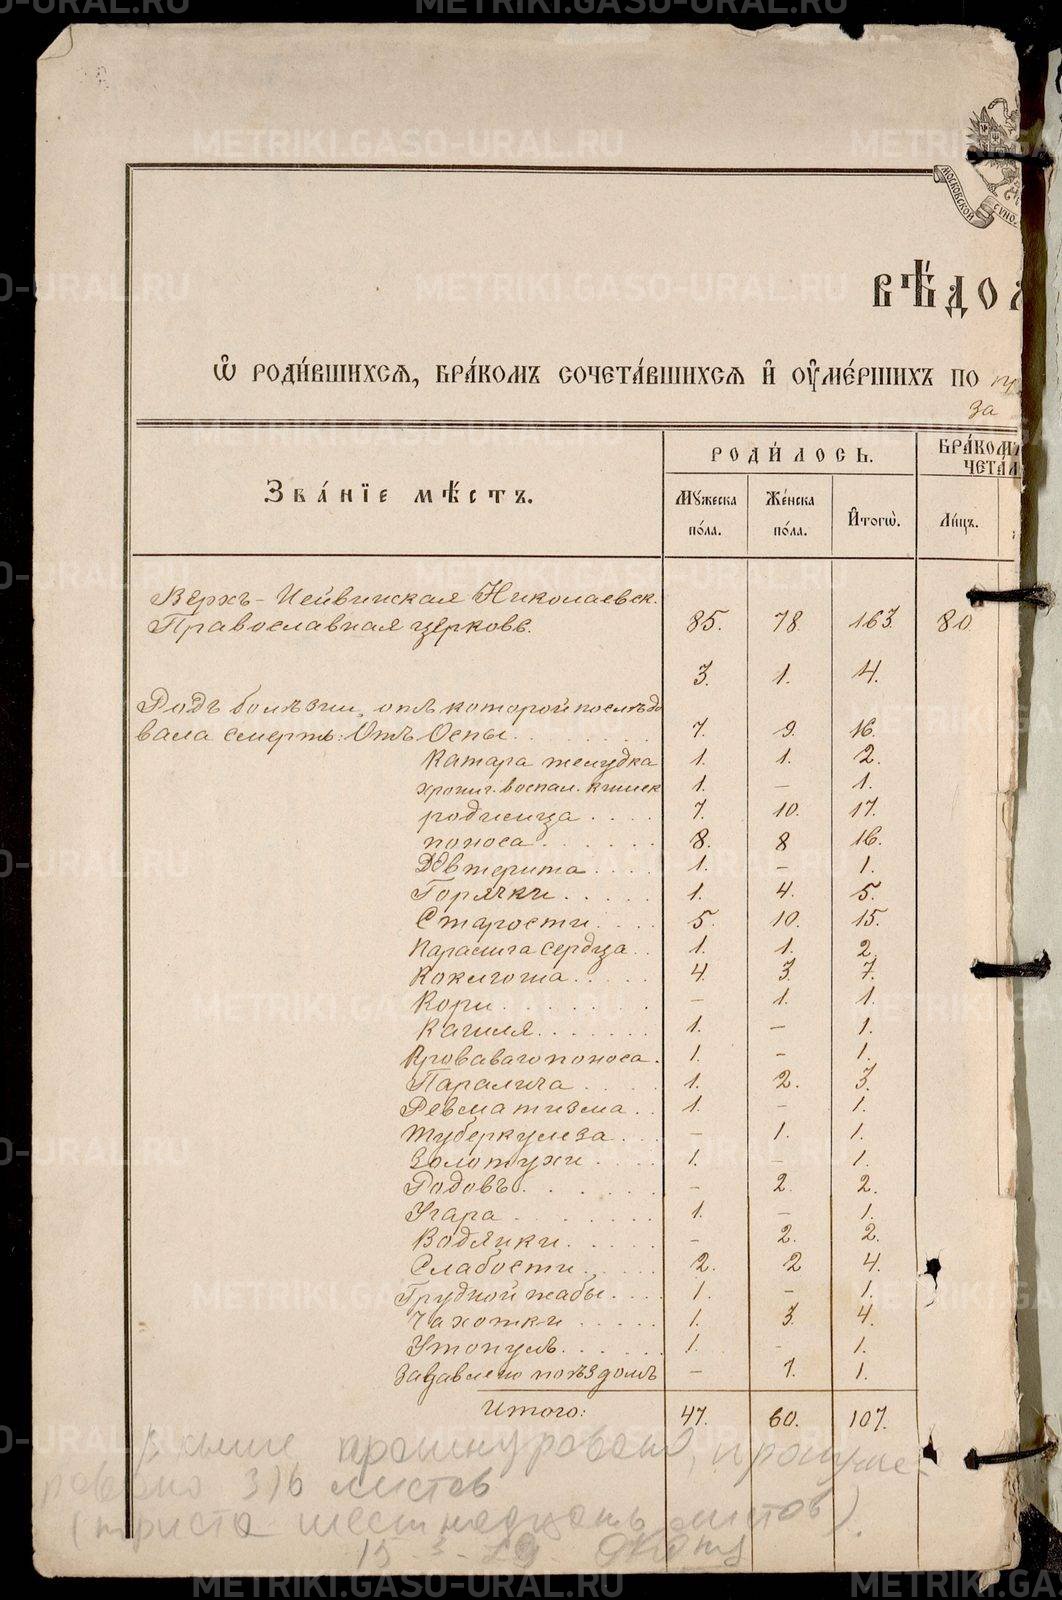 METRIKI.GASO-URAL.RU
МОСКОВСКОЙ СѴНО
ВѢ́ДО
Ѽ РОДИ́ВШИХСѦ, БРА́КОМЪ СОЧЕТА́ВШИХСѦ И҆ ОУ҆МЕ́РШИХЪ ПО
за
Зва́нїе мѣ́стъ.
РОДИ́ЛОСЬ.
БРА́КОМЪ
ЧЕТА́
Мꙋжеска по́ла.
Же́нска по́ла.
И҆тогѡ̀.
Ли́цъ.
Верхъ-Нейвинская Николаевск.
Православная церковь. 85. 78. 163. 80
3. 1. 4.
Родъ болѣзни, отъ которой послѣдо
вала смерть: Отъ Оспы 7. 9. 16.
Катара желудка 1. 1. 2.
хронич. воспал. кишек 1. – 1.
родимца 7. 10. 17.
поноса 8. 8 16.
Дифтерита 1. – 1.
Горячки 1. 4. 5.
Старости 5. 10. 15.
Паралича сердца 1. 1. 2.
Коклюша 4. 3. 7.
Кори – 1. 1.
Кашля 1. – 1.
Кроваваго поноса 1. – 1.
Паралича 1. 2. 3.
Ревматизма 1. – 1.
Туберкулеза – 1. 1.
Золотухи 1. – 1.
Родовъ – 2. 2.
Угара 1. – 1.
Водянки – 2. 2.
Слабости 2. 2 4.
Грудной жабы 1. – 1.
Чахотки 1. 3. 4.
Утонулъ 1. - 1.
Задавлено поѣздомъ – 1. 1.
Итого: 47. 60. 107.
прошнуровано, пронуме-
ровано 316 листов
(триста шестнадцать листов).